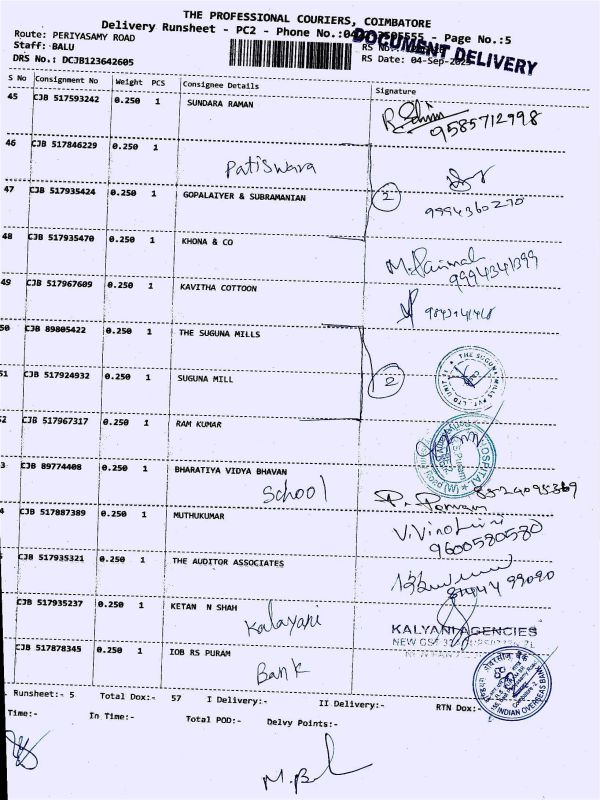 THE PROFESSIONAL COURIERS, COIMBATORE
Delivery Runsheet - PC2 - Phone No.: - Page No.:5
DOCUMENT DELIVERY
Route: PERIYASAMY ROAD
Staff: BALU
RS No.:
DRS No.: DCJB123642605
RS Date: 04-Sep-
S No Consignment No Weight PCS Consignee Details Signature
45 CJB 517593242 0.250 1 SUNDARA RAMAN
9585712998
46 CJB 517846229 0.250 1
Patiswara
47 CJB 517935424 0.250 1 GOPALAIYER & SUBRAMANIAN
2
9994360270
48 CJB 517935470 0.250 1 KHONA & CO
9994341399
49 CJB 517967609 0.250 1 KAVITHA COTTOON
50 CJB 89805422 0.250 1 THE SUGUNA MILLS
THE SUGUNA MILLS PVT LTD UNIT
51 CJB 517924932 0.250 1 SUGUNA MILL
2
52 CJB 517967317 0.250 1 RAM KUMAR
HOSPITAL
3 CJB 89774408 0.250 1 BHARATIYA VIDYA BHAVAN
School
4 CJB 517887389 0.250 1 MUTHUKUMAR
V.Vinothini
9600580580
CJB 517935321 0.250 1 THE AUDITOR ASSOCIATES
CJB 517935237 0.250 1 KETAN N SHAH
Kalayani
KALYANI AGENCIES
CJB 517878345 0.250 1 IOB RS PURAM
Bank
INDIAN OVERSEAS BANK
Runsheet:- 5 Total Dox:- 57 I Delivery:- II Delivery:- RTN Dox:-
Time:- In Time:- Total POD:- Delvy Points:-